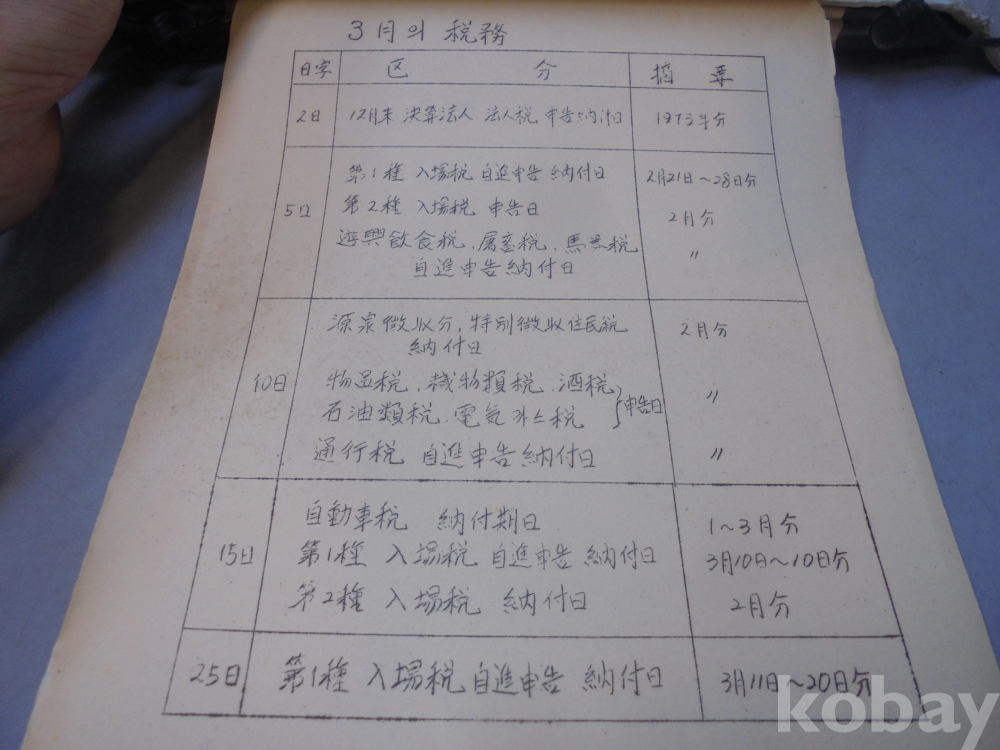 3月의 税務
日字 区 分 摘要
2日 12月末 決算法人 法人税 申告納付日 1973年分
第1種 入場税 自進申告 納付日 2月21日~28日分
5日 第2種 入場税 申告日 2月分
遊興飲食税, 屠畜税, 馬券税 〃
自進申告納付日
源泉徴収分, 特別徴収住民税 2月分
納付日
10日 物品税, 織物類税, 酒税 申告日 〃
石油類税, 電気까스税
通行税 自進申告納付日 〃
自動車税 納付期日 1~3月分
15日 第1種 入場税 自進申告 納付日 3月10日~10日分
第2種 入場税 納付日 2月分
25日 第1種 入場税 自進申告 納付日 3月11日~20日分
kobay